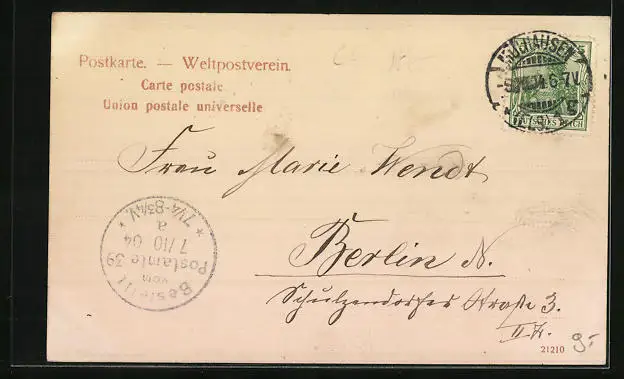 Postkarte. — Weltpostverein.
Carte postale
Union postale universelle
5
DEUTSCHES REICH
Frau Marie Wendt
Berlin N.
Schulzendorfer Straße 3.
II Tr.
Bestellt
vom
Postamte 39
7/10 04
a
* 7¼-8¾V. *
21210
9.-